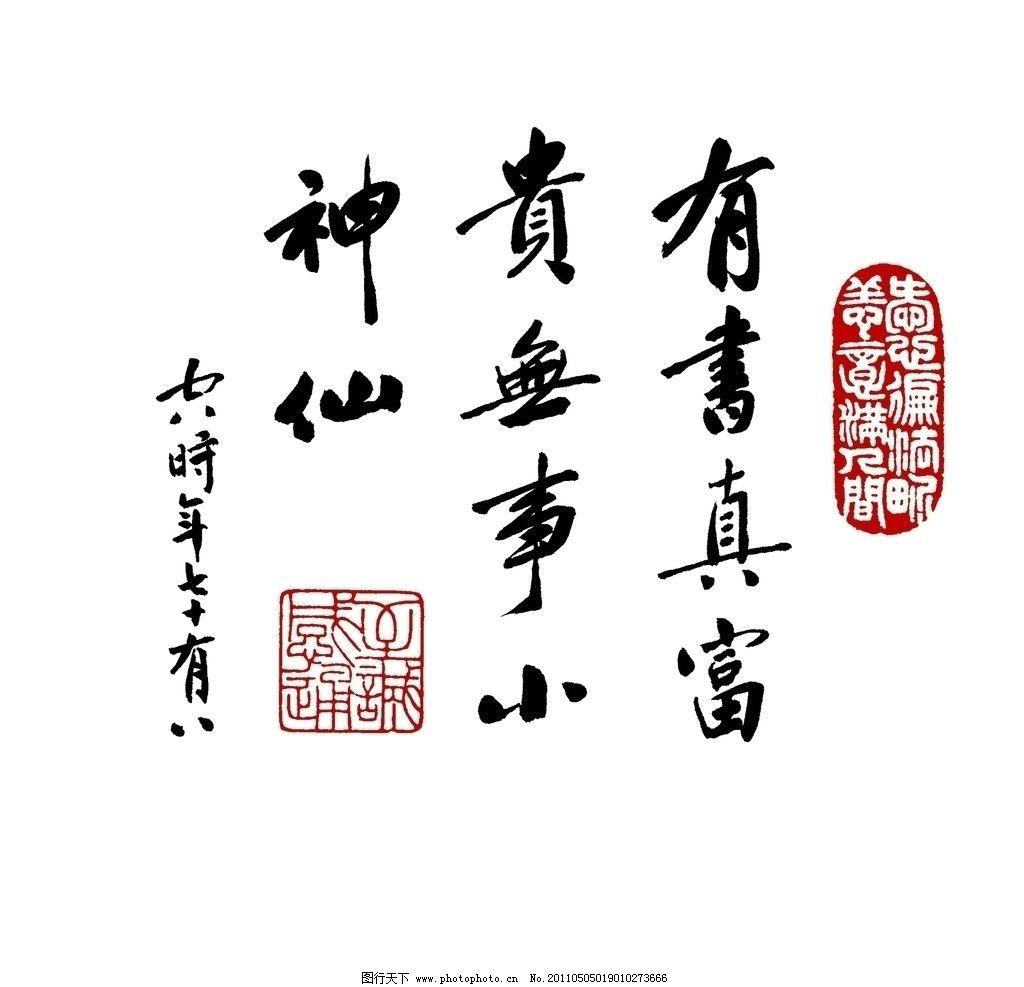 愛心徧法界
善意滿人間
有書真富
貴無事小
神仙
時年七十有八
图行天下 www.photophoto.cn No.20110505019010273666